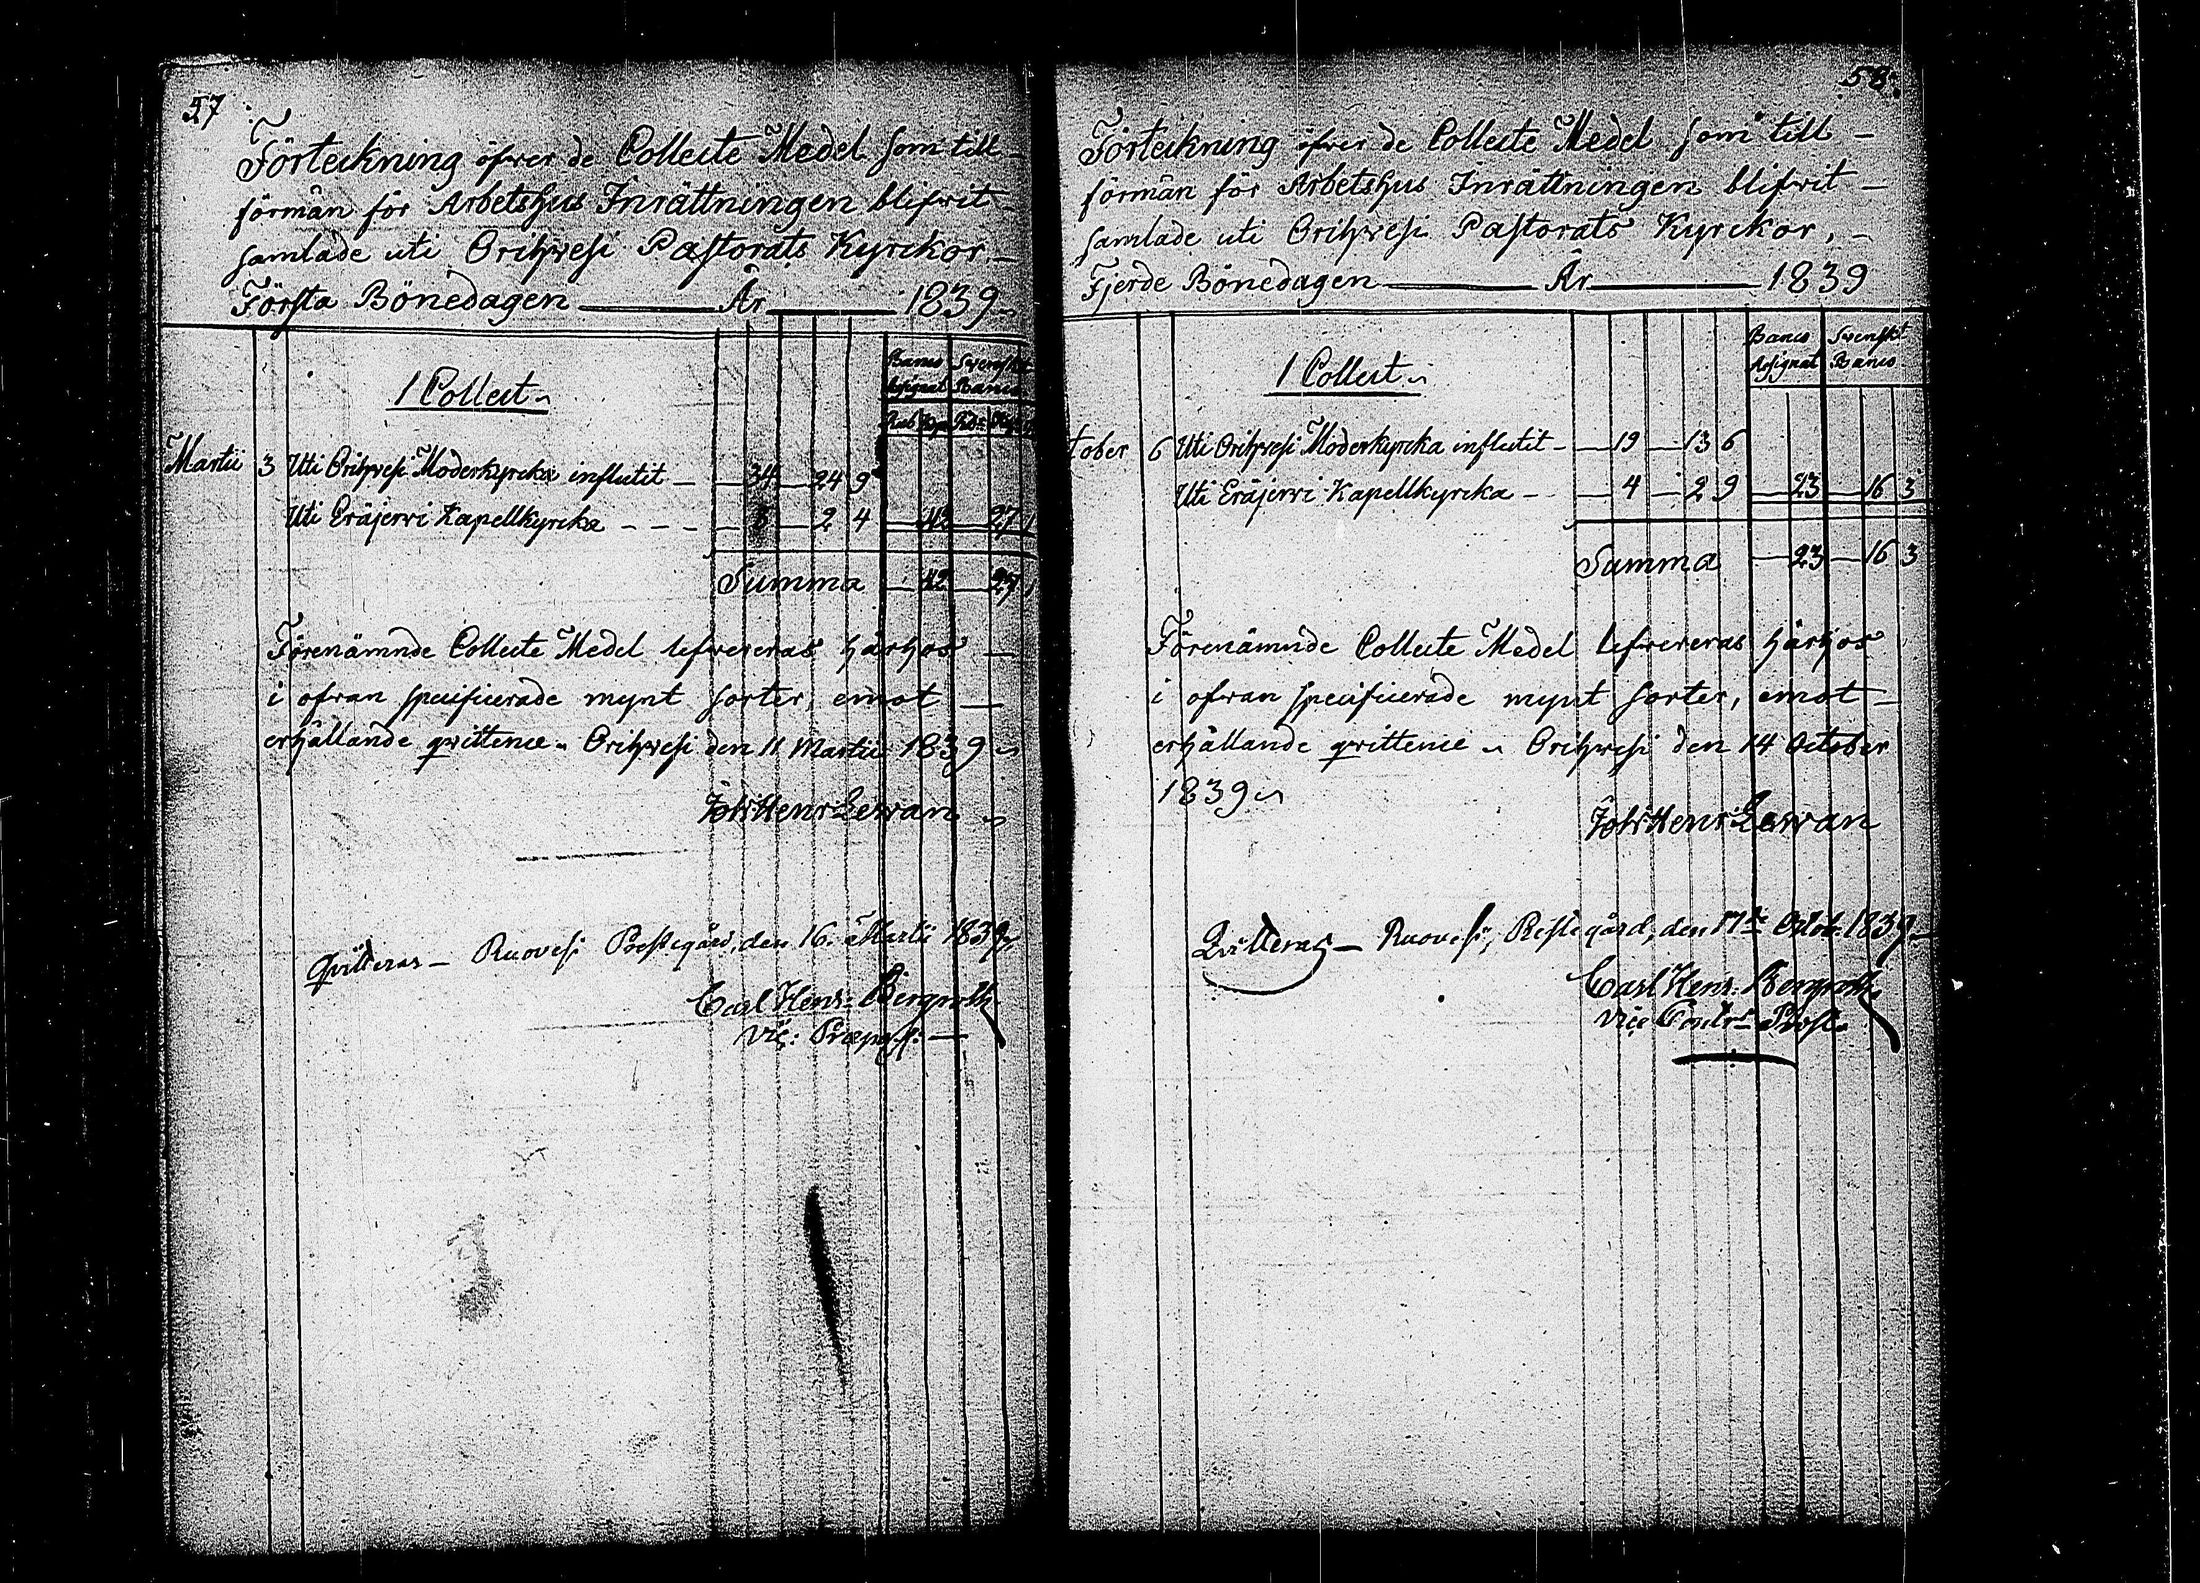 57
Förteckning öfver de Collecte Medel som till
förmån för Arbetshus Inrättningen blifvit
samlade uti Orihvesi Pastorats Kyrckor
Första Bönedagen — År — 1839
Banco Assignat Svenskt Banco
1 Collect
Rub Kop Rdr
Martii 3 Uti Orihvesi Moderkyrcka influtit — 34 — 24 9
Uti Eräjervi Kapellkyrcka - - - — 8 — 2 4 — 42 — 27 1
Summa — 42 — 27 1
Förenämnde Collecte Medel lefvereras härhos —
i ofvan specificerade mynt sorter, emot —
erhållande qvittence. Orihvesi den 11 Martii 1839
Joh: Henr: Levvan
Qvitteras — Ruovesi Prestegård, den 16. Martii 1839
Carl Henr: Bergroth
Vic: Præpos: —
58
Förteckning öfver de Collecte Medel som till —
förmån för Arbetshus Inrättningen blifvit —
samlade uti Orihvesi Pastorats Kyrckor, —
Fjerde Bönedagen — År — 1839
Banco Assignat Svenskt Banco
1 Collect
tober 6 Uti Orihvesi Moderkyrcka influtit — 19 — 13 6
Uti Eräjervi Kapellkyrcka — 4 — 2 9 — 23 — 16 3
Summa — 23 — 16 3
Förenämnde Collecte Medel lefvereras härhos
i ofvan specificerade mynt sorter, emot —
erhållande qvittence Orihvesi den 14 October
1839
Joh: Henr: Levvan
Qvitteras — Ruovesi, Prestegård, den 17de Octob. 1839
Carl Henr: Bergroth
Vice Contr: Prost